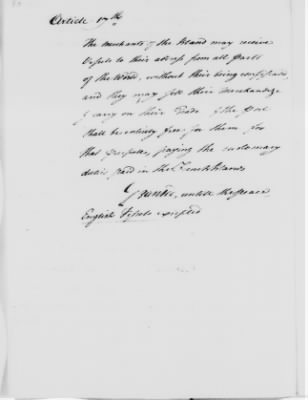 Article 17th
The merchants of the Island may receive
Vessels to their address from all parts
of the World, without their being confiscated
and they may sell their merchandize
& carry on their Trade & the port
shall be entirely free for them for
that purpose, paying the customary
duties paid in the French Islands
Granted, untill the peace
English Vessels excepted